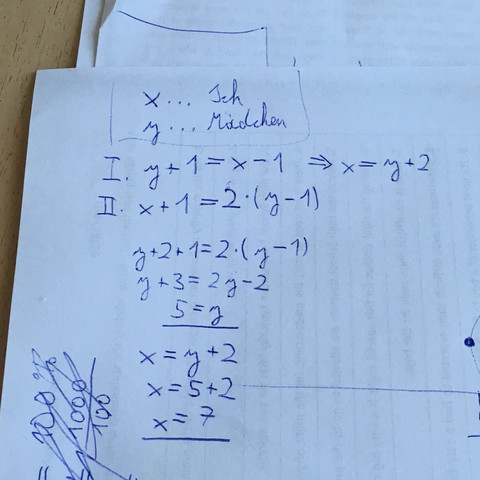 x... Ich
y... Mädchen
I. y+1=x-1 ⇒ x=y+2
II. x+1=2·(y-1)
y+2+1=2·(y-1)
y+3=2y-2
5=y
x=y+2
x=5+2
x=7
= 100%
= 1000
100